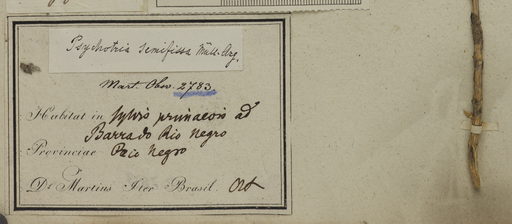 Psychotria semifissa Müll. Arg.
Mart. Obs. 2783
Habitat in sylvis primaevis ad
Barra do Rio Negro
Provinciae Rio Negro
Dr. Martius Iter Brasil. Oct